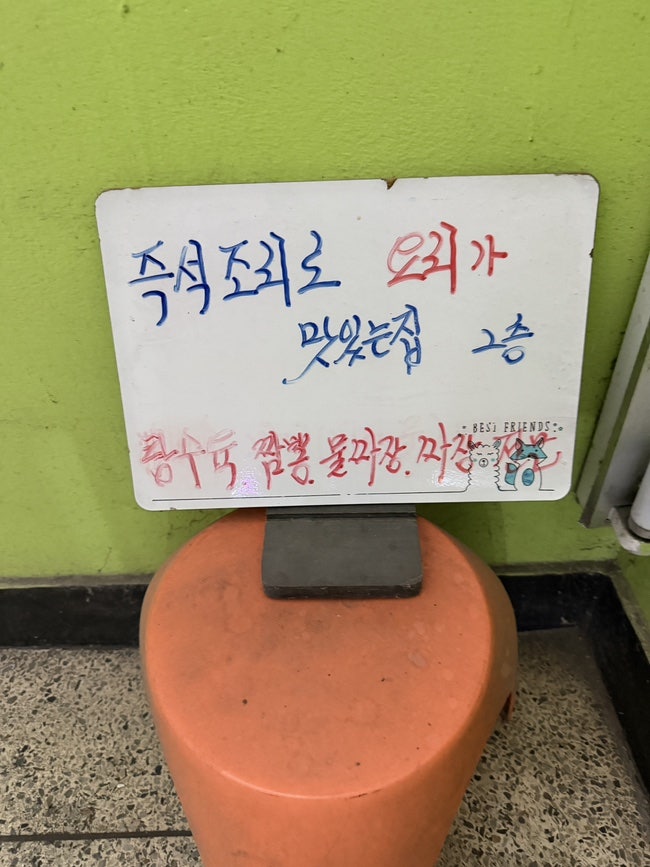 즉석조리로 요리가
맛있는집 2층
BEST FRIENDS
탕수육 짬뽕. 물짜장. 짜장 전문